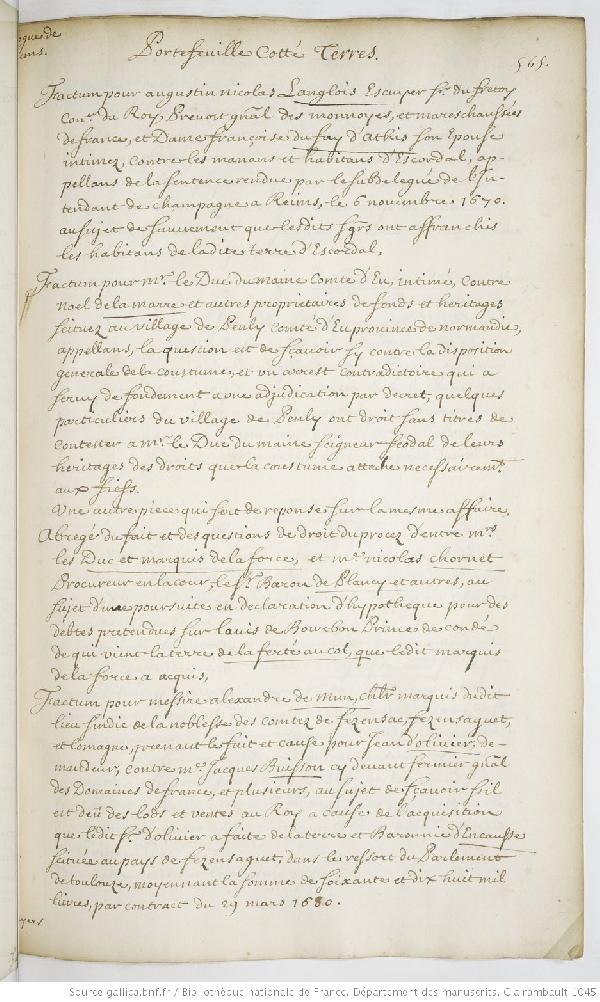 Portefeuille Cotté Terres.
565.
Factum pour augustin nicolas Langlois Escuyer Sr. du fretoy
Conr. du Roy Prevost gñal des monnoyes, et mareschaussées
de france, et Dame françoise du fay d'Athis son Epouse
intimez, Contre les manans et habitans d'Escordal, ap-
pellans de la sentence rendue par le subdelegué de l'In-
tendant de champagne a Reims, le 6 novembre 1670.
au sujet de sauvement que lesdits sgrs ont affranchis
les habitans de ladite terre d'Escordal.
Factum pour mr. le Duc du maine Comte d'Eu, intimé, Contre
noel de la marre et autres proprietaires de fonds et heritages
scituez au village de Penly Comté d'Eu province de normandie,
appellans, la question est de sçavoir sy contre la disposition
generale de la Coustume, et un arrest contradictoire qui a
servy de fondement a une adjudication par decret, quelques
particuliers du village de Penly ont droit sans titres de
Contester a mr. le Duc du maine seigneur feodal de leurs
heritages des droits que la coustume attache necessairemt.
aux fiefs.
Une autre piece qui sert de reponse sur la mesme affaire.
Abregé du fait et des questions de droit du procez d'entre mrs
les Duc et marquis de la force, et me. nicolas Chornet
Procureur en la cour, le sr. Baron de Plancy et autres, au
sujet d'une poursuite en declaration d'hypotheque pour des
debtes pretendues sur louis de Bourbon Prince de condé
de qui vient la terre de la ferté au col, que ledit marquis
de la force a acquis.
Factum pour messire alexandre de mun, chlr marquis dudit
lieu sindic de la noblesse des comtez de fezensac, fezensaguet,
et lomagne, prenant le fait et cause pour Jean d'olivier, de-
mandeur, Contre me. Jacques Buisson cy devant fermier gñal
des Domaines de france, et plusieurs, au sujet de sçavoir s'il
est deü des lods et ventes au Roy a cause de l'acquisition
que ledit sr. d'olivier a faite de la terre et Baronnie d'Encausse
scituée au pays de fezensaguet, dans le ressort du Parlement
de toulouze, moyennant la somme de soixante et dix huit mil
livres, par contract du 29 mars 1680.
Source gallica.bnf.fr / Bibliothèque nationale de France. Département des manuscrits. Clairambault 1045